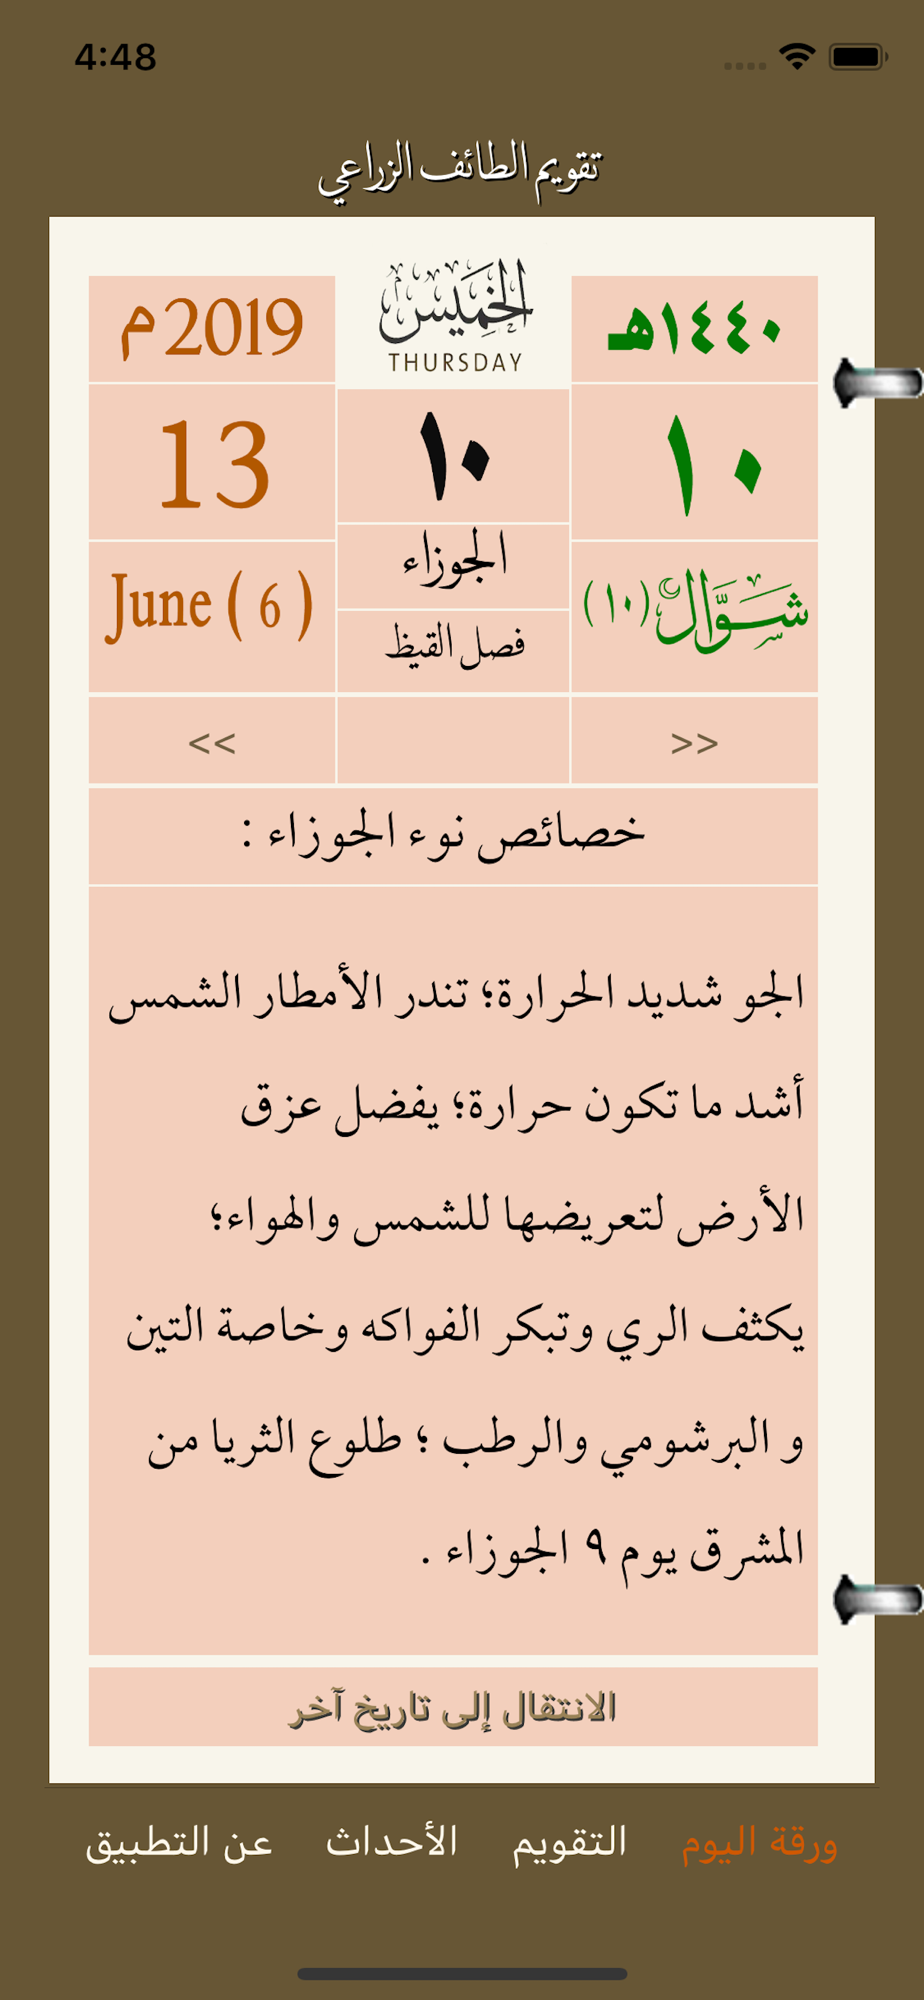 4:48
تقويم الطائف الزراعي
١٤٤٠هـ
الخَمِيس
THURSDAY
2019م
١٠
١٠
13
شَوَّال (١٠)
الجوزاء
June ( 6 )
فصل القيظ
>>
<<
خصائص نوء الجوزاء :
الجو شديد الحرارة؛ تندر الأمطار الشمس
أشد ما تكون حرارة؛ يفضل عزق
الأرض لتعريضها للشمس والهواء؛
يكثف الري وتبكر الفواكه وخاصة التين
و البرشومي والرطب ؛ طلوع الثريا من
المشرق يوم ٩ الجوزاء .
الانتقال إلى تاريخ آخر
ورقة اليوم
التقويم
الأحداث
عن التطبيق